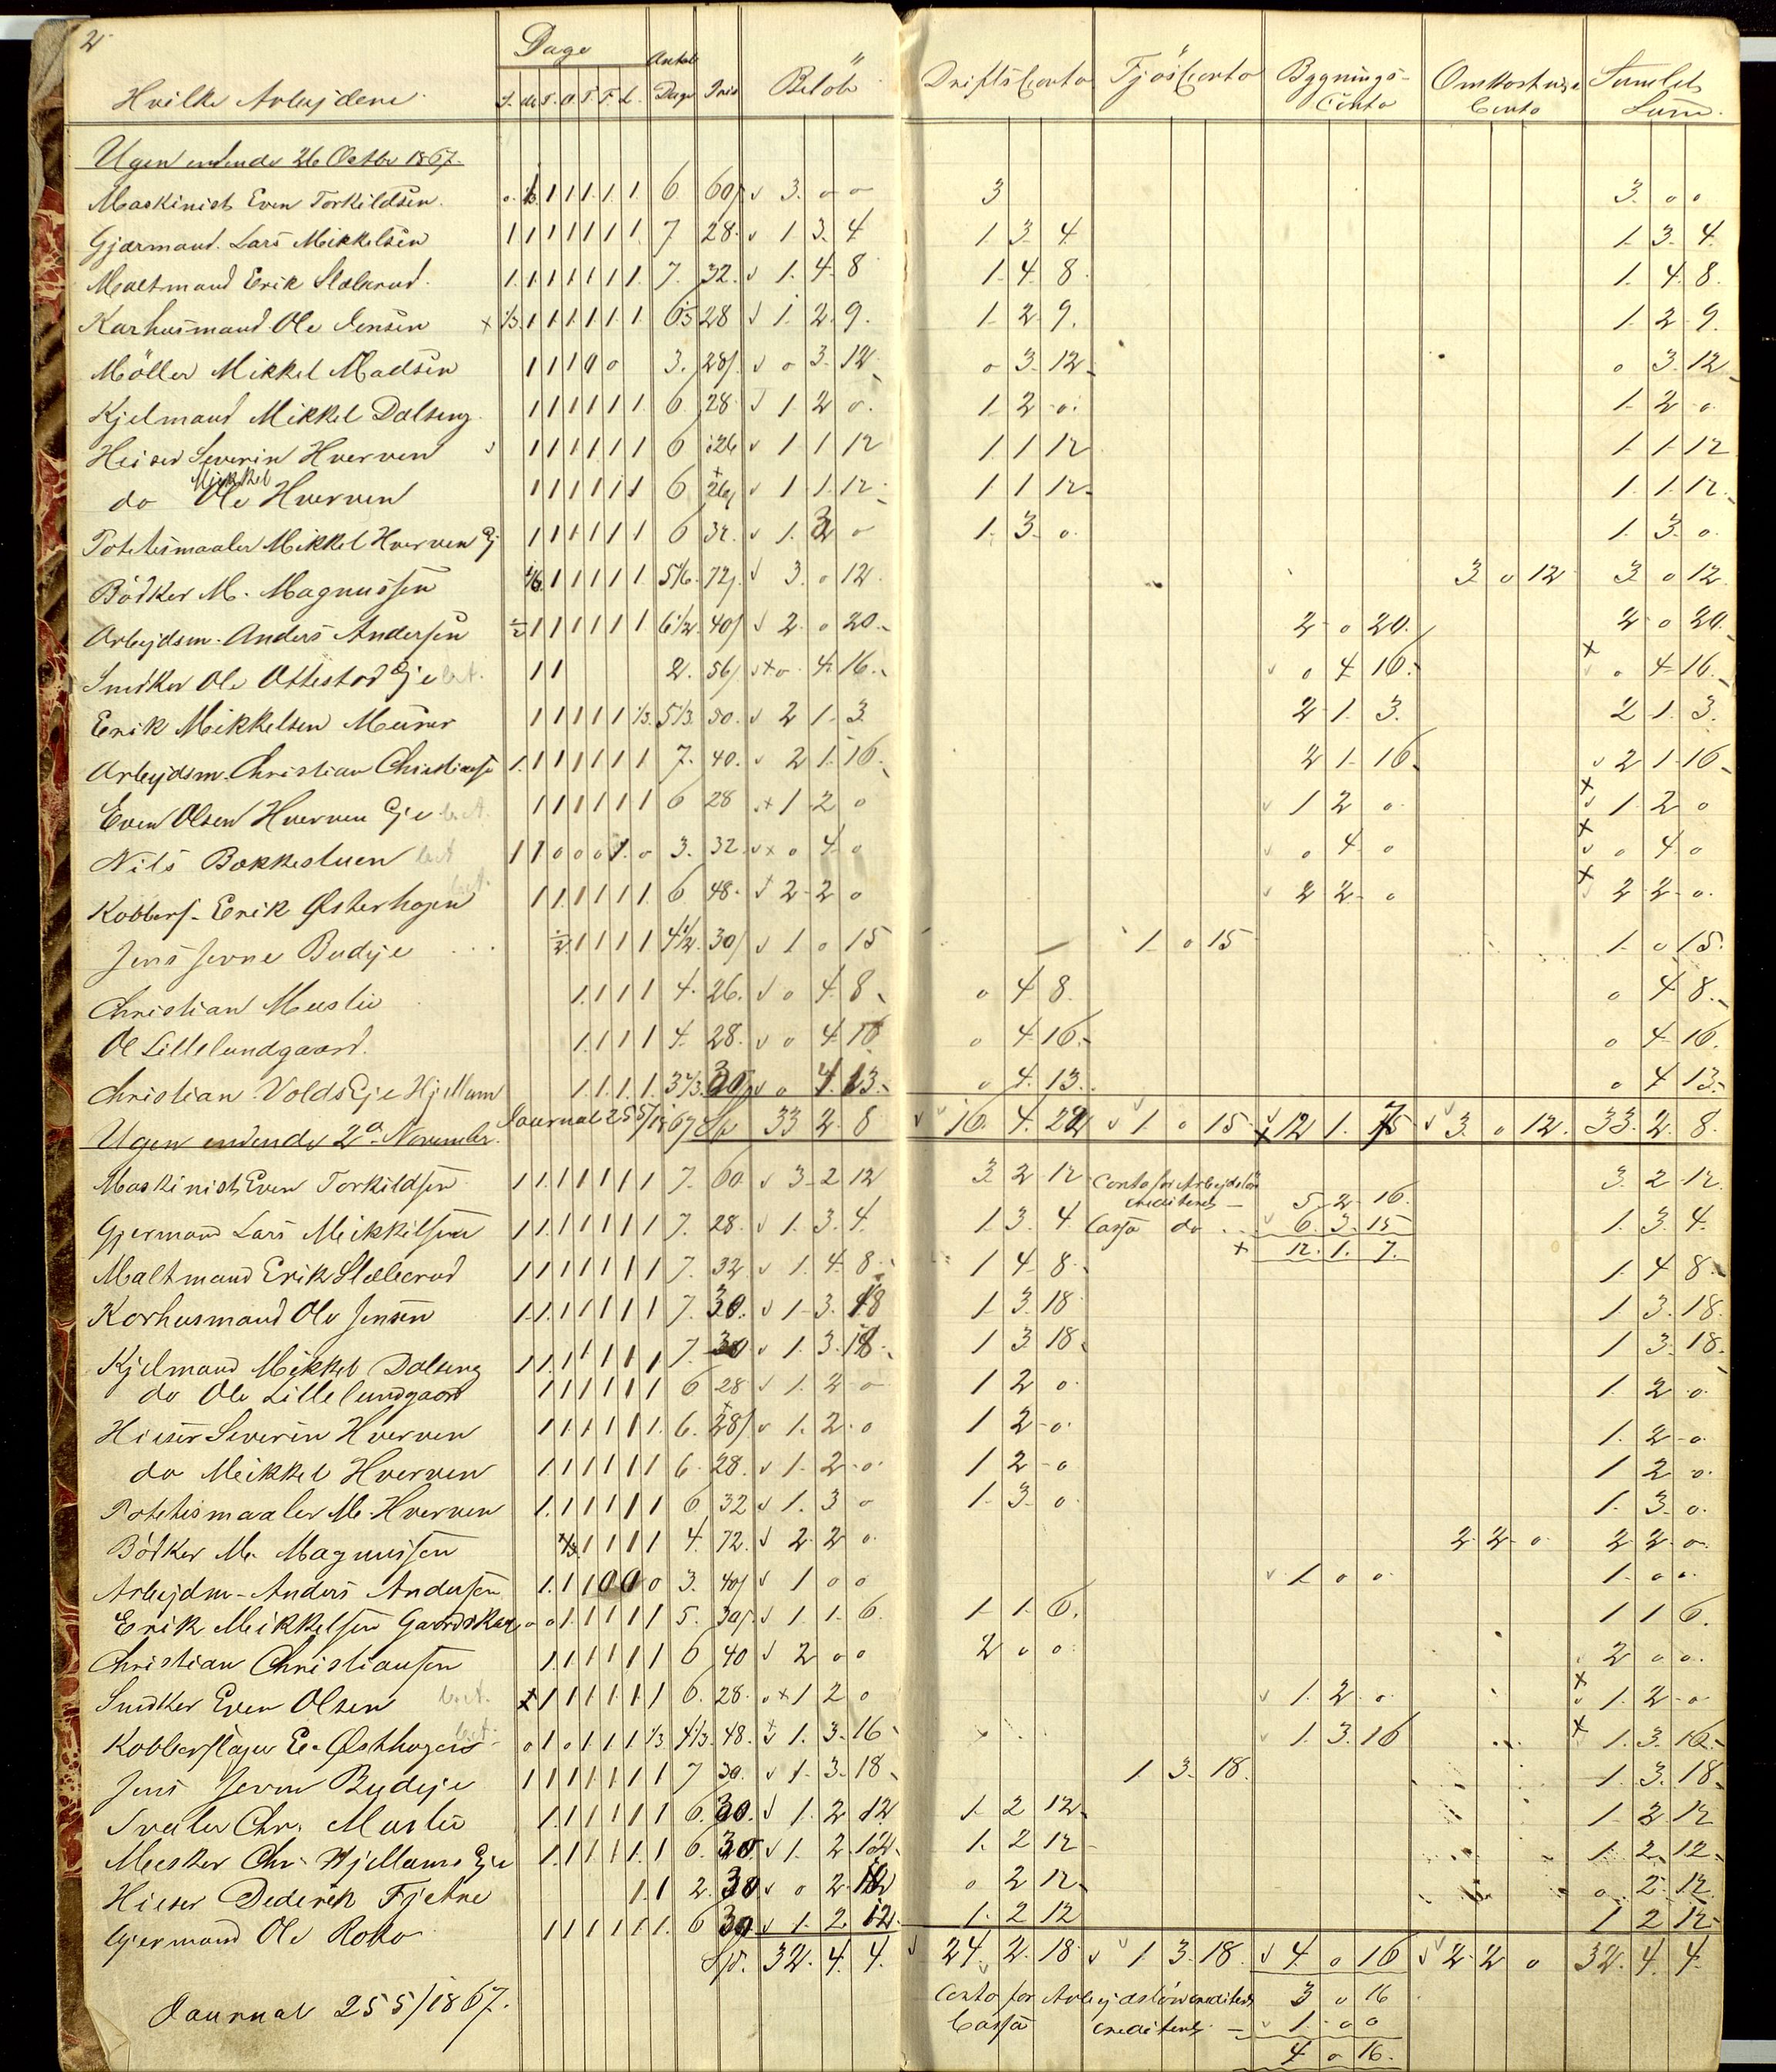 2
Dage Antal
Hvilke Arbejdere S. M. T. O. T. F. L. Dage Pris Beløb Drifts Conto Fjøs Conto Bygnings- Conto Omkostnings Conto Samlet Sum.
Ugen endende 26 Octbr 1867.
Maskinist Even Torkildsen. 0. 1/3 1 1 1. 1. 1. 6 60 3. 0 0 3 3. 0 0
Gjærmand. Lars Mikkelsen 1 1 1 1 1 1 1. 7 28. 1 3. 4. 1. 3 4. 1. 3. 4.
Maltmand Erik Slæbrud. 1. 1. 1 1 1 1 1. 7. 32. 1. 4. 8 1. 4. 8. 1. 4. 8.
Karhusmand. Ole Jensen x 1/3 1 1 1. 1. 1. 1. 6 1/3 28 1. 2. 9. 1. 2 9. 1. 2. 9.
Möller Mikkel Madsen 1 1 1 0 0 3. 28 0 3. 12 0 3. 12 0 3. 12
Kjelmand Mikkel Dalseng. 1 1 1 1 1 1. 6. 28 1 2 0. 1 2 0. 1. 2 0.
Heiser Severin Hverven 1 1 1 1 1 1 6 26 1 1 12 1 1 12 1 1 12
do Mikkel Ole Hverven 1 1 1 1 1 1 6 26 1 1. 12. 1 1 12 1. 1. 12.
Potetesmaaler Mikkel Hverven Ej 1 1 1 1 1 1 6 32. 1. 3 0 1. 3 0. 1. 3. 0.
Bödker M. Magnussen 1/6 1 1 1 1 1. 5 1/6. 72. 3. 0 12. 3 0 12 3 0 12.
Arbejdsm. Anders Andersen 1/2 1 1 1 1 1 1 6 1/2. 40 2. 0 20. 2 0 20. 2 0 20.
Snedker Ole Ottestad Eje bet. 1 1 2. 56 x 0. 4. 16. 0 4 16. x 0 4 16.
Erik Mikkelsen Murer 1 1 1 1 1 1/3. 5 1/3. 50. 2 1. 3. 2 1. 3. 2 1. 3.
Arbejdsm. Christian Christiansen 1. 1 1 1 1 1 1 7. 40. 2 1. 16. 2 1 16. 2 1 16.
Even Olsen Hverven Eje bet. 1 1 1 1 1 1 6 28 x 1 2 0 1 2 0. x 1. 2 0
Nils Bakkestuen bet 1 1 0 0 0 1. 0 3. 32. x 0 4. 0 0 4. 0 x 0 4. 0
Kobbers. Erik Østerhagen bet. 1 1. 1 1 1 1. 6. 48. 2 2 0 2 2 0 x 2 2 0.
Jens Jevne Budeje 1/2. 1 1 1 1 4 1/2. 30 1 0 15 1. 0 15 1. 0 15.
Christian Muslie 1. 1 1 1 4. 26. 0 4. 8 0 4 8. 0 4 8.
Ol Lillelundgaard. 1. 1. 1 1 4. 28. 0 4. 16 0 4 16. 0 4 16.
Christian Volds Eje Hjellum 1. 1. 1. 1. 3 2/3. 30 0 4. 13. 0 4. 13. 0 4 13.
Journal 255/1867 Sp 33 2. 8 16. 4. 22 1 0 15 x 12 1. 7 3. 0 12. 33. 2. 8.
Ugen endende 2den November.
Maskinist Even Torkildsen 1 1. 1 1 1 1 1 7. 60. 3 2 12 3 2 12 Conto for Arbejdsløn crediteret - 5 2 16. 3. 2 12.
Gjermand Lars Mikkelsen 1 1. 1 1 1 1 1 7. 28. 1. 3. 4. 1 3. 4. Cassa do 6. 3. 15 1. 3. 4.
x 12. 1. 7.
Maltmand Erik Slæbrud 1 1 1 1 1 1 1 7. 32 1. 4. 8. 1 4 8. 1. 4 8.
Karhusmand Ole Jensen 1. 1. 1 1 1 1 1 7. 30. 1 3. 18 1 3. 18 1 3. 18.
Kjelmand Mikkel Dalseng 1 1. 1 1 1 1 1 7. 30 1. 3. 18. 1 3 18. 1 3. 18.
do Ole Lillelundgaard 1 1 1 1 1 1 6 28 1. 2 0 1 2 0. 1. 2 0.
Hieser Severin Hverven 1 1. 1 1 1 1. 6. 28 1. 2. 0 1 2 0. 1. 2 0.
do Mikkel Hverven 1. 1 1 1 1 1 6. 28. 1 2. 0. 1 2 0 1 2 0.
Potetesmaaler M. Hverven 1. 1 1 1 1 1 6 32 1. 3 0 1. 3 0. 1. 3. 0.
Bödker M. Magnussen 1 1 1 1 4. 72. 2 2 0. 2. 2 0. 2 2. 0.
Arbejdm. Anders Andersen 1. 1 1 0 0 0 3. 40 1 0 0 1. 0 0. 1. 0 0.
Erik Mikkelsen Gaardskar 0 0 1. 1 1 1 1 5. 30. 1 1. 6. 1 1. 6. 1 1 6.
Christian Christiansen 1. 1. 1 1 1 1 6 40 2 0 0 2 0 0. 2 0 0.
Snedker Even Olsen bet. 1 1 1. 1. 1. 1 6. 28. x 1 2 0 1. 2. 0. x 1. 2 0
Kobberslager E. Østhagen bet. 0 1 0 1. 1 1 1/3. 4 1/3. 48. 1. 3. 16 1. 3. 16 x 1. 3. 16.
Jens Jevne Budeje 1 1 1 1 1. 1 1 7 30. 1. 3. 18. 1 3 18. 1. 3. 18.
Svaler Chr. Muslie 1. 1. 1 1 1 1 6. 30. 1. 2 12. 1. 2 12. 1 2 12
Mesker Chr. Hjellums Eje 1. 1. 1 1 1. 1 6. 30. 1. 2. 12. 1. 2 12 1. 2. 12.
Hieser Dederik Fjetre 1. 1 2. 30 0 2 12 0 2 12. 0 2 12.
Gjermand Ole Roko 1 1 1 1 1 1. 6 30 1. 2 12. 1. 2 12 1 2 12
Spd. 32. 4. 4. 24. 2. 18. 1 3. 18. 4. 0 16 2 2 0 32. 4. 4.
Journal 255/1867.
Conto for Arbejdsløn crediteres 3 0 16
Cassa crediteres - 1. 0 0
4 0 16.